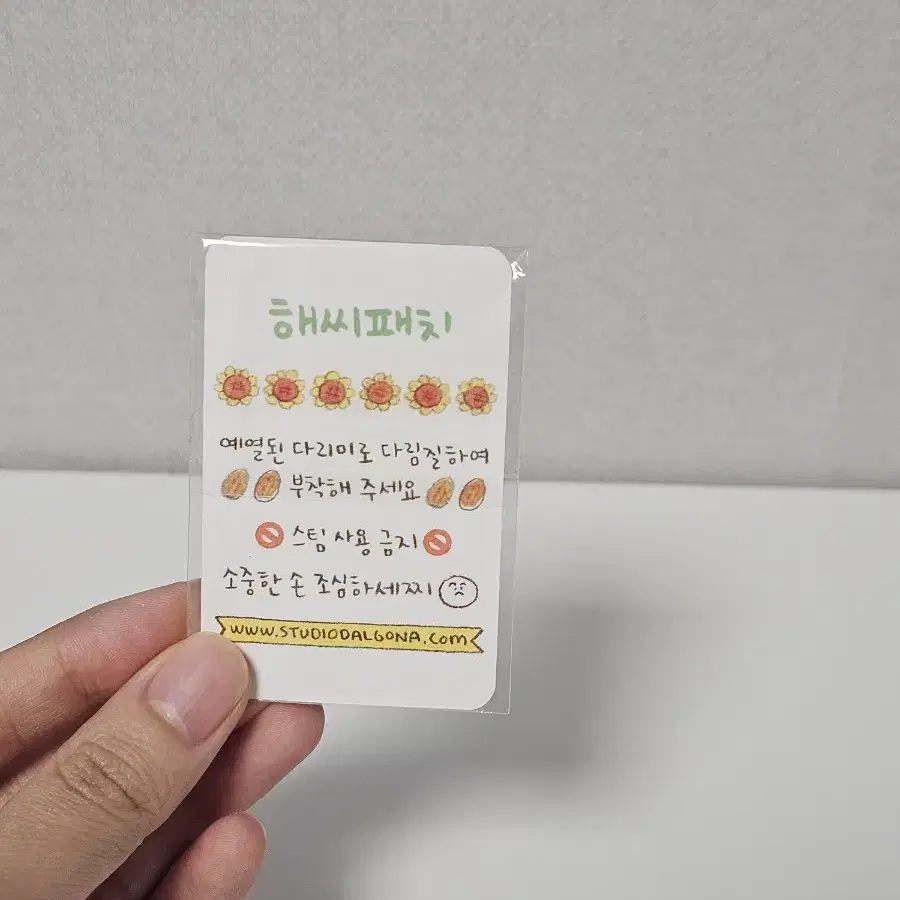 해씨패치
예열된 다리미로 다림질하여
부착해 주세요
스팀 사용 금지
소중한 손 조심하세찌
WWW.STUDIODALGONA.COM